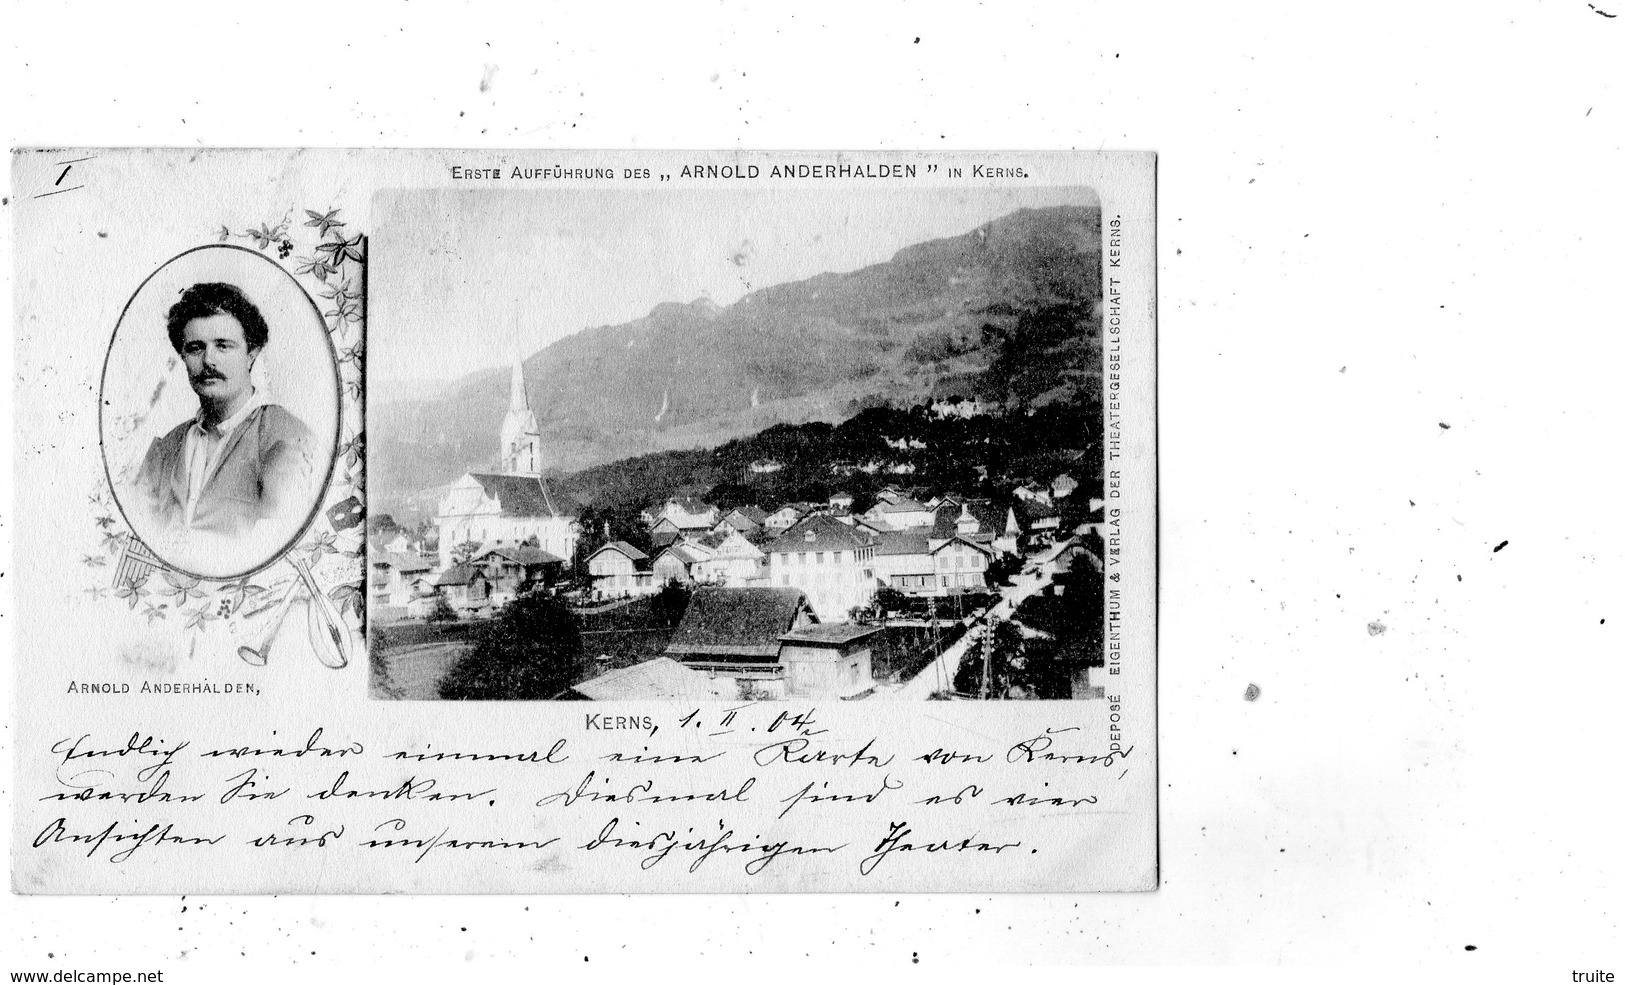 I
ERSTE AUFFÜHRUNG DES „ ARNOLD ANDERHALDEN ” IN KERNS.
DEPOSÉ EIGENTHUM & VERLAG DER THEATERGESELLSCHAFT KERNS.
ARNOLD ANDERHALDEN,
KERNS, 1. II. 04
Endlich wieder einmal eine Karte von Kerns,
werden Sie denken. Diesmal sind es vier
Ansichten aus unserem diesjährigen Theater.
www.delcampe.net
truite